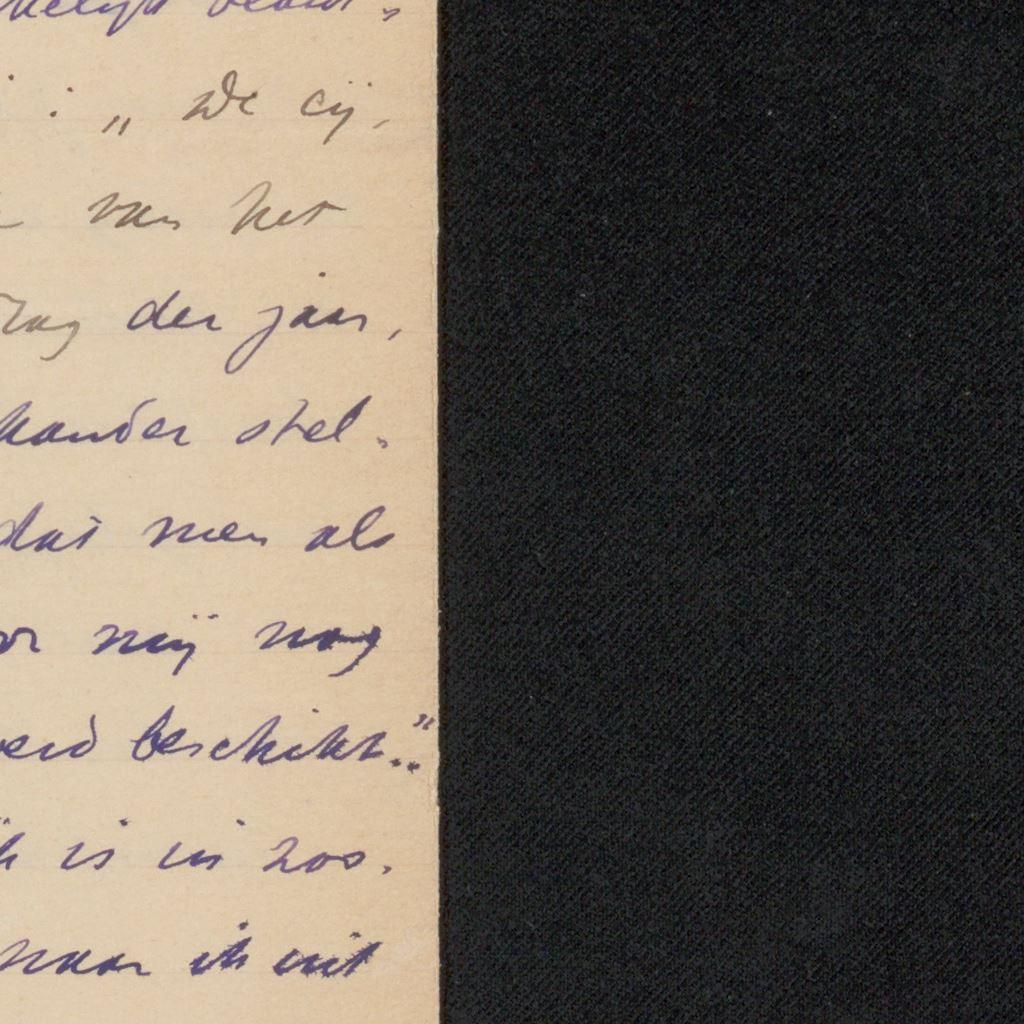 : „ de cij-
van het
der jaar,
kander stel-
dat men als
mij nog
beschikt."
is in zoo-
naar ik uit